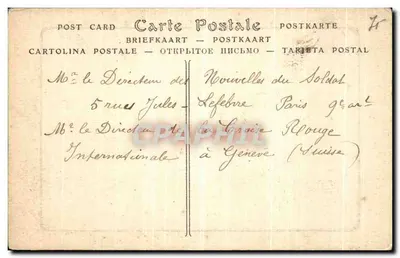 75
POST CARD Carte Postale POSTKARTE
BRIEFKAART — POSTKAART
CARTOLINA POSTALE — ОТКРЫТОЕ ПИСЬМО — TARJETA POSTAL
Mr le Directeur des Nouvelles du Soldat
5 rue Jules-Lefebvre Paris 9e art
Mr le Directeur de la Croix Rouge
Internationale à Genève (Suisse)